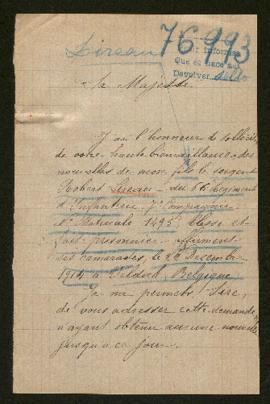 Sireau 76.993
Que se hace al
Devolver
Majesté.
J'ai l'honneur de sollicit
de votre haute bienveillance des
nouvelles de mon fils le sergent
Robert Sireau du 66 Régiment
d'Infanterie 7e Compagnie
No Matricule 1495 blessé et
fait prisonnier affirment
ses camarades, le 24 Décembre
1914 à Belgique
Je me permets Sire,
de vous adresser cette demande
n'ayant obtenu aucune nouvelle
jusqu'à ce jour.